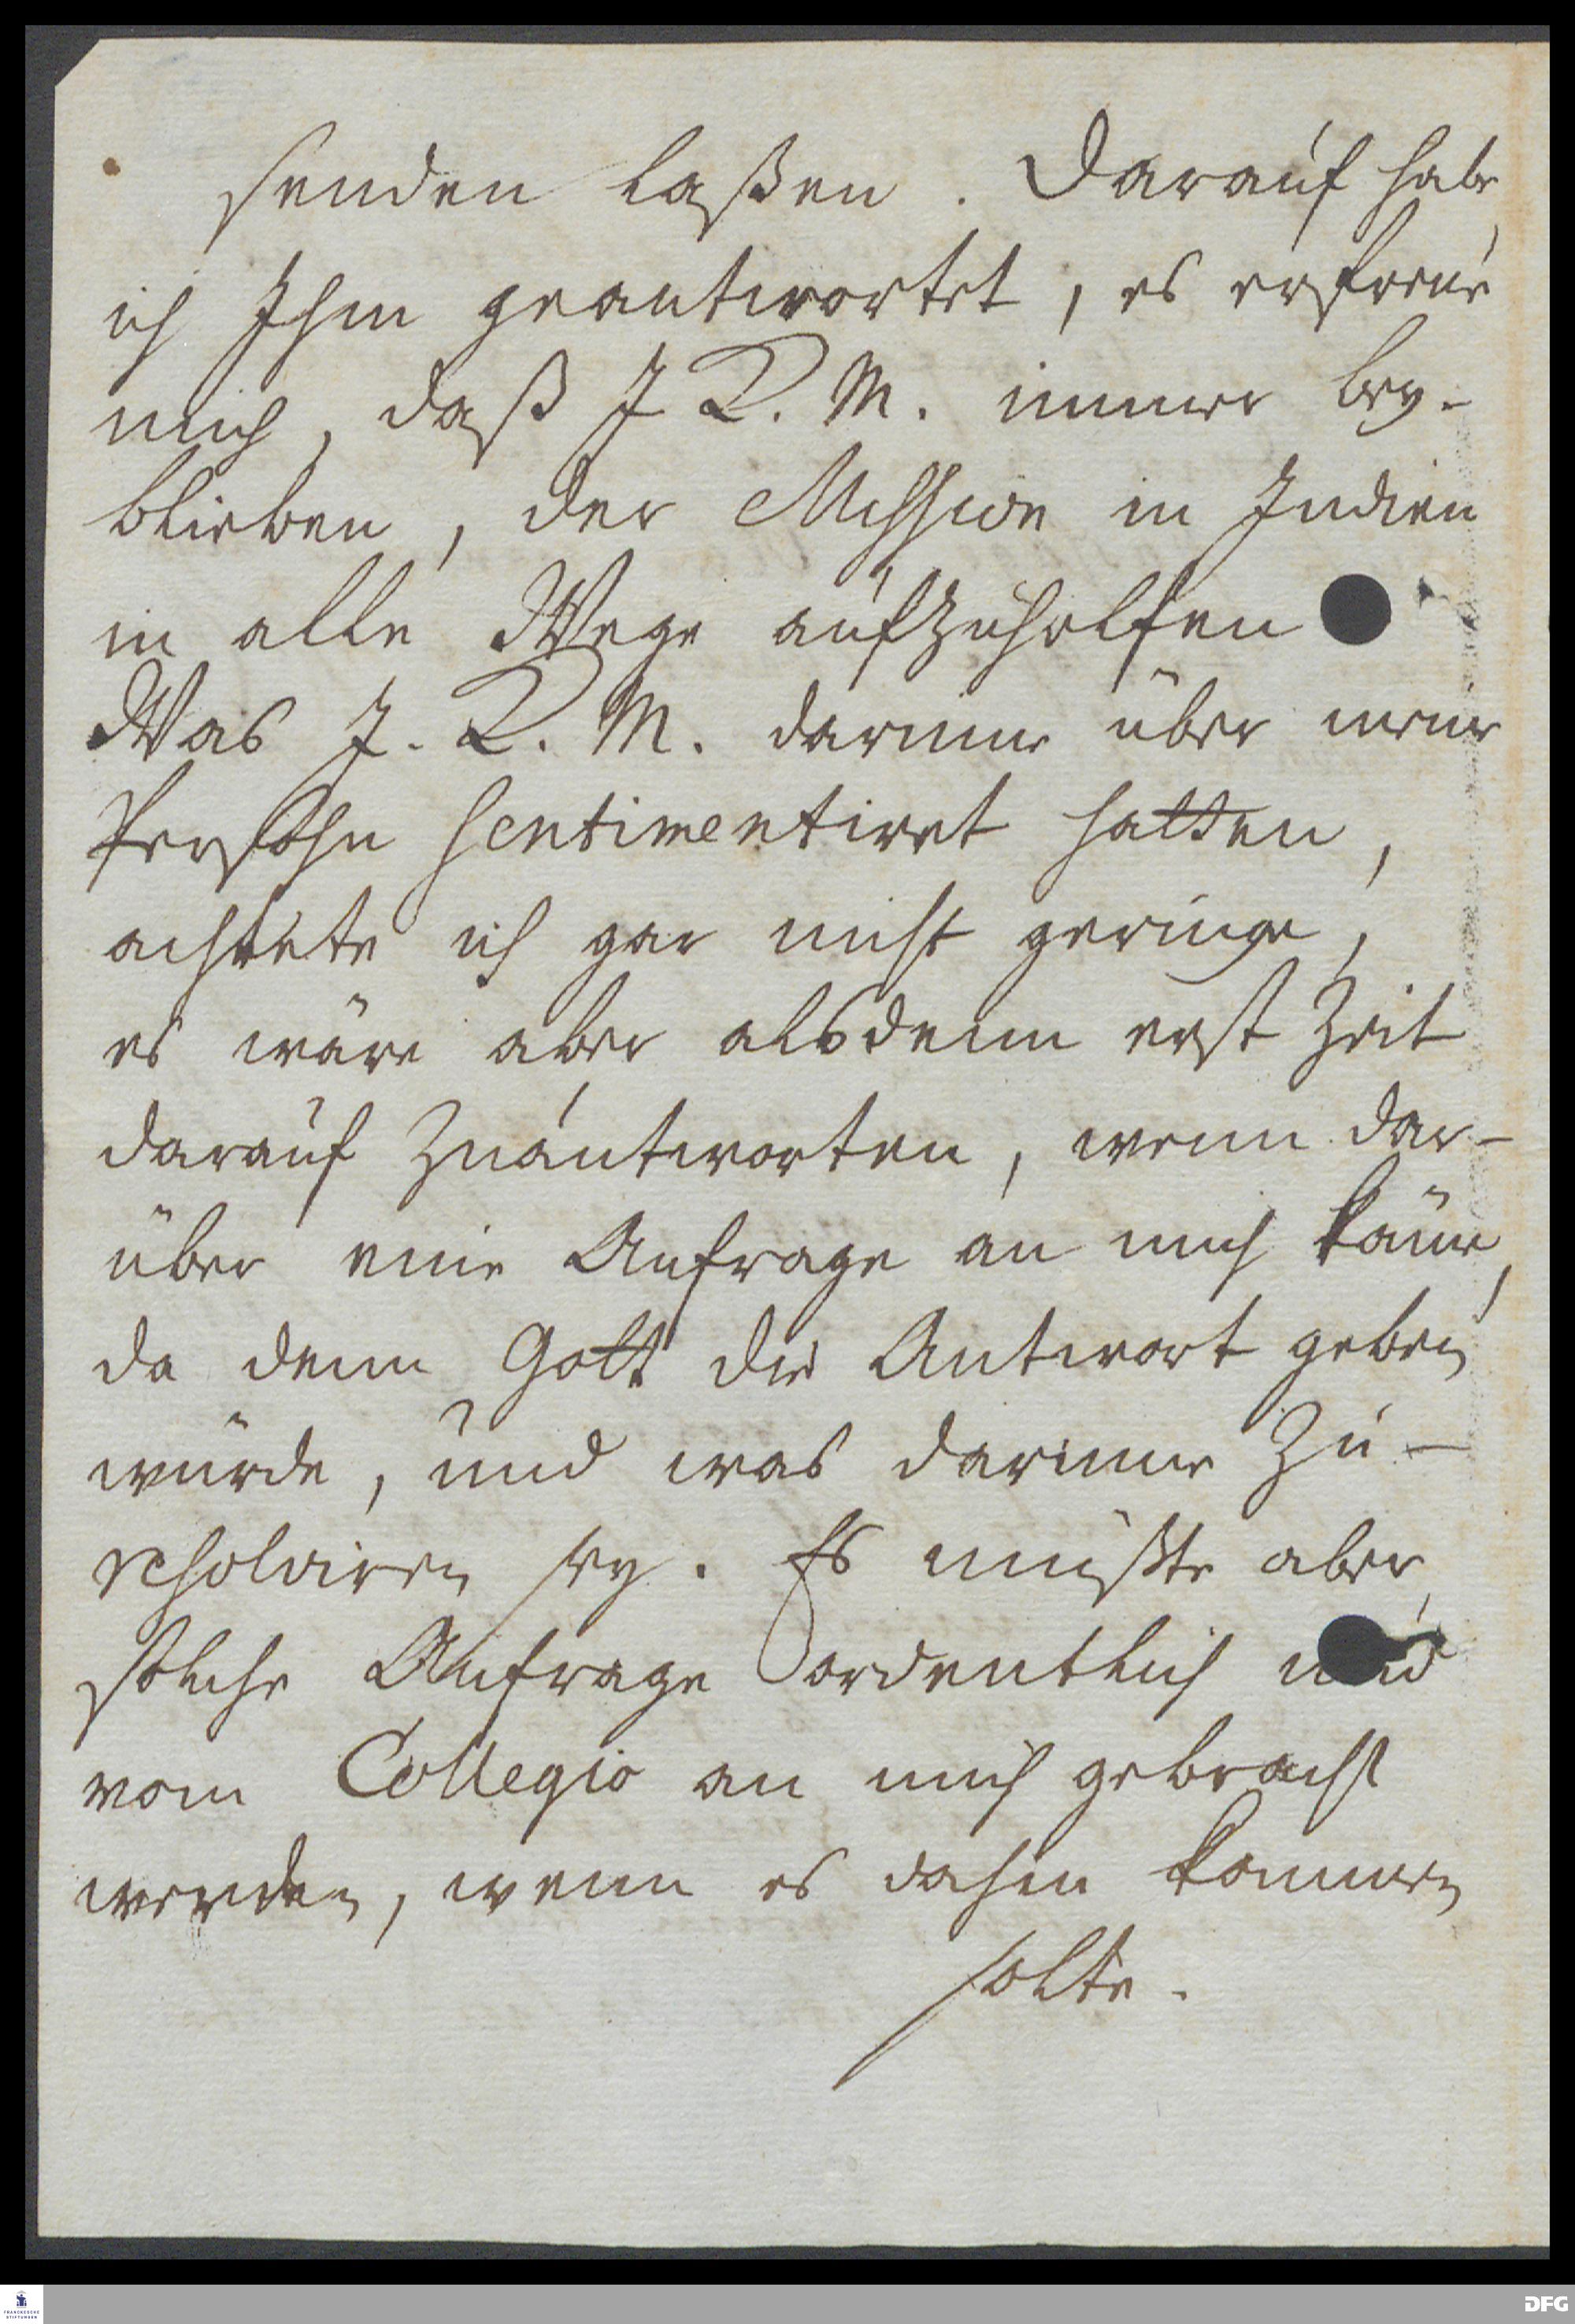 senden laßen. Darauf habe
ich Ihm geantwortet, es erfreue
mich, daß I K. M. immer bey-
blieben, der Mission in Indien
in alle Wege aufzuhelfen
Was I. K. M. darinne über meine
Persohn sentimentiret hatten,
achtete ich gar nicht geringe,
es wäre aber alsdenn erst Zeit
darauf zuantworten, wenn dar-
über eine Anfrage an mich käme,
da denn Gott die Antwort geben
würde, und was darinne zu-
resolviren sey. Es müßte aber
solche Anfrage ordentlich und
vom Collegio an mich gebracht
werden, wenn es dahin kommen
solte.
FRANCKESCHE
STIFTUNGEN
DFG